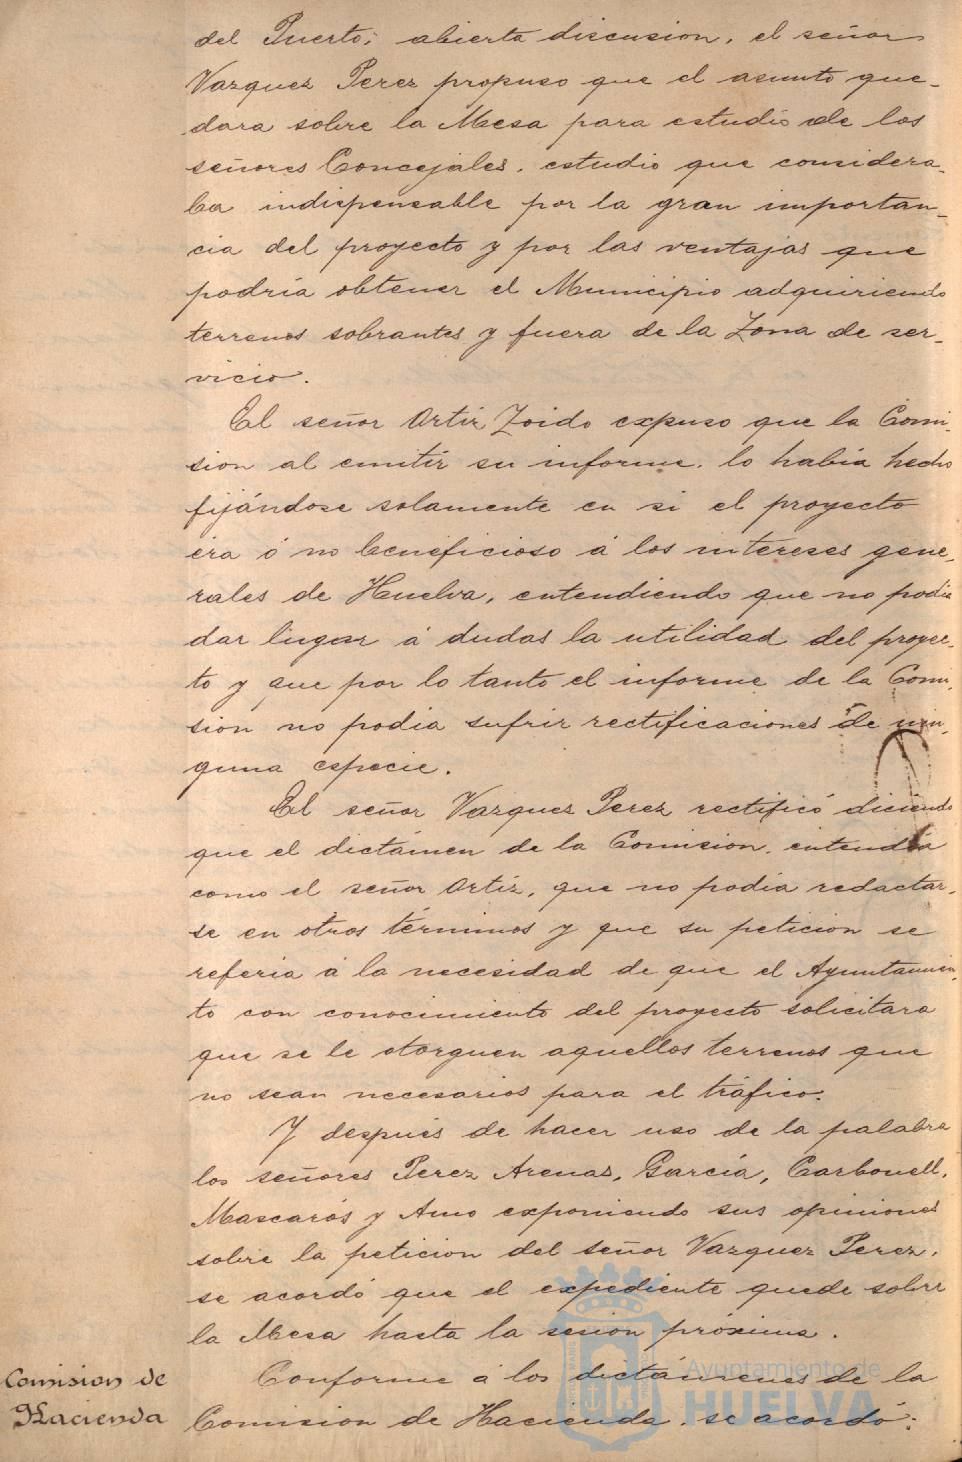 del Puerto; abierta discusion, el señor
Vazquez Perez propuso que el asunto que-
dara sobre la Mesa para estudio de los
señores Concejales, estudio que considera-
ba indispensable por la gran importan-
cia del proyecto y por las ventajas que
podría obtener el Municipio adquiriendo
terrenos sobrantes y fuera de la Zona de ser-
vicio.
El señor Ortiz Zoido expuso que la Comi-
sion al emitir su informe, lo había hecho
fijándose solamente en si el proyecto
era ó no beneficioso á los intereses gene-
rales de Huelva, entendiendo que no podía
dar lugar á dudas la utilidad del proyec-
to y que por lo tanto el informe de la Comi-
sion no podia sufrir rectificaciones de nin-
guna especie.
El señor Vazquez Perez rectificó diciendo
que el dictámen de la Comision, entendía
como el señor Ortiz, que no podía redactar-
se en otros términos y que su peticion se
referia á la necesidad de que el Ayuntamien-
to con conocimiento del proyecto solicitara
que se le otorguen aquellos terrenos que
no sean necesarios para el tráfico.
Y después de hacer uso de la palabra
los señores Perez Arenas, García, Carbonell,
Mascarós y Amo exponiendo sus opiniones
sobre la peticion del señor Vazquez Perez,
se acordó que el expediente quede sobre
la Mesa hasta la sesión próxima.
Comision de Hacienda
Conforme á los dictámenes de la
Comision de Hacienda, se acordó:
Ayuntamiento de
HUELVA